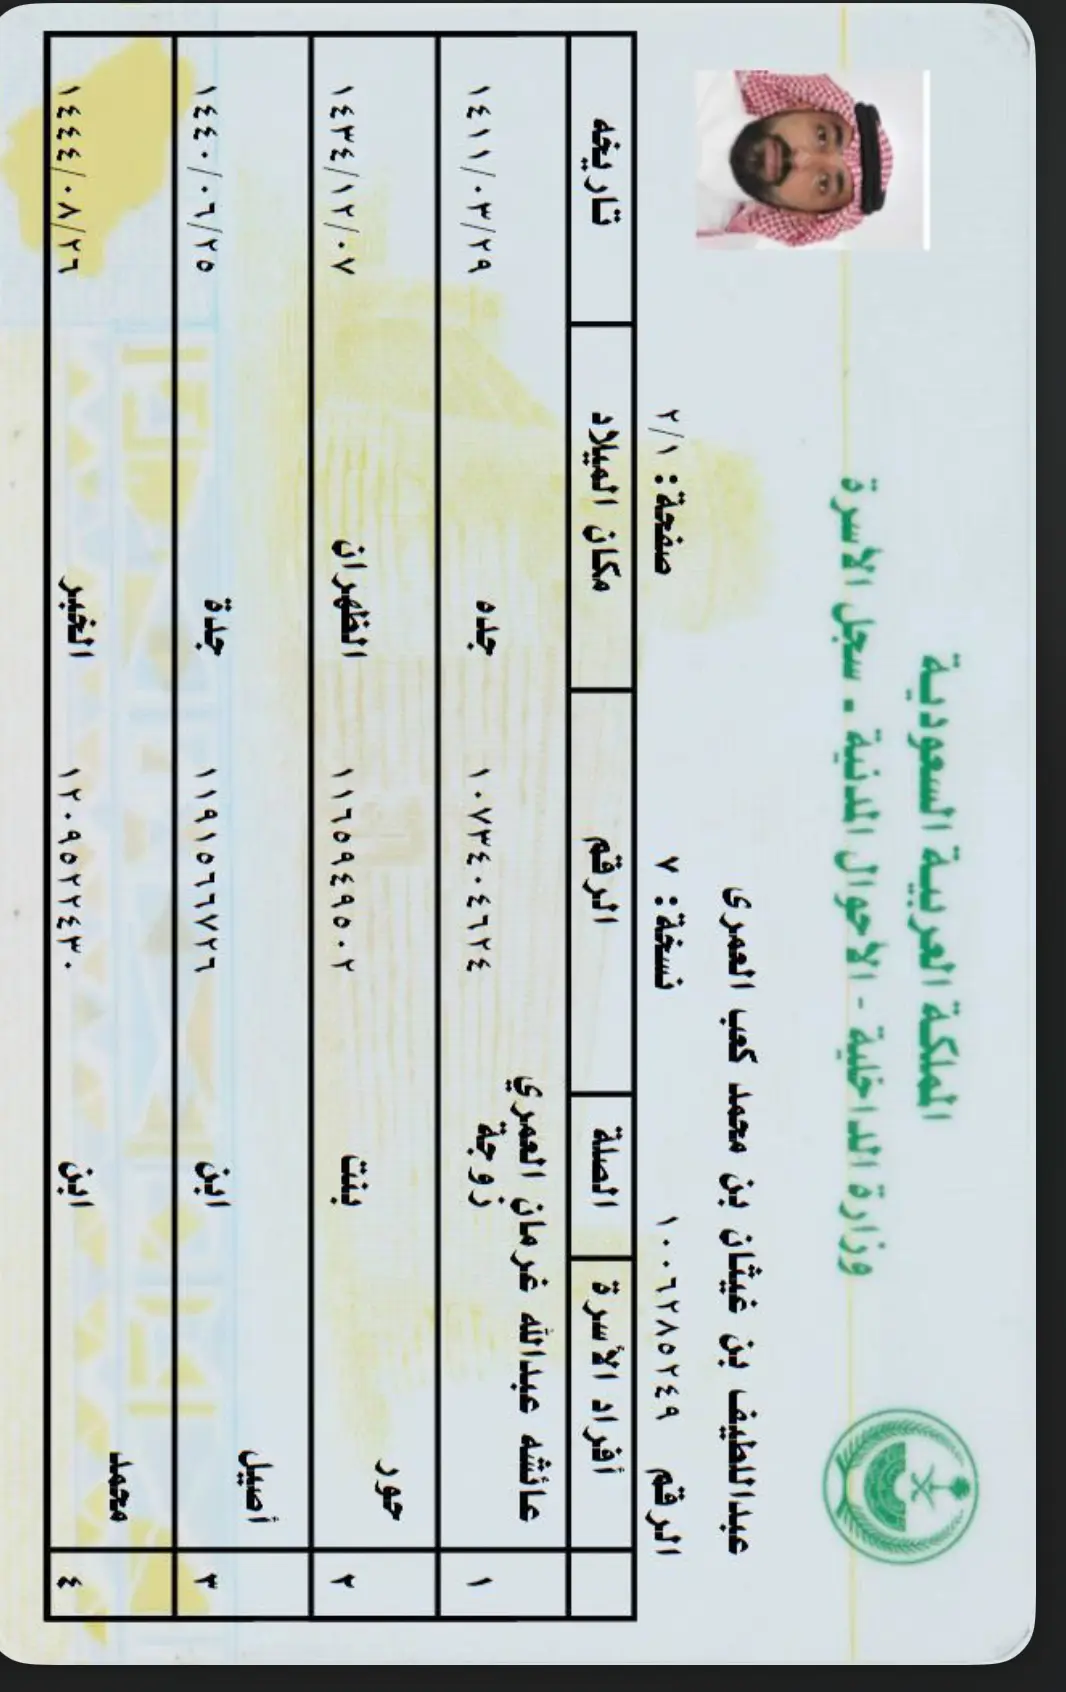 المملكة العربية السعودية
وزارة الداخلية - الأحوال المدنية - سجل الأسرة
عبداللطيف بن غيثان بن محمد كعب العمرى
الرقم ١٠٠٦٢٨٥٢٤٩ نسخة: ٧ صفحة: ٢/١
أفراد الأسرة الصلة الرقم مكان الميلاد تاريخه
١ عائشه عبدالله غرمان العمري زوجة ١٠٧٣٤٠٤٦٢٤ جده ١٤١١/٠٣/٢٩
٢ حور بنت ١١٦٥٩٤٩٥٠٢ الظهران ١٤٣٤/١٢/٠٧
٣ أصيل ابن ١١٩١٥٦٦٧٢٦ جدة ١٤٤٠/٠٦/٢٥
٤ محمد ابن ١٢٠٩٥٢٢٤٣٠ الخبر ١٤٤٤/٠٨/٢٦